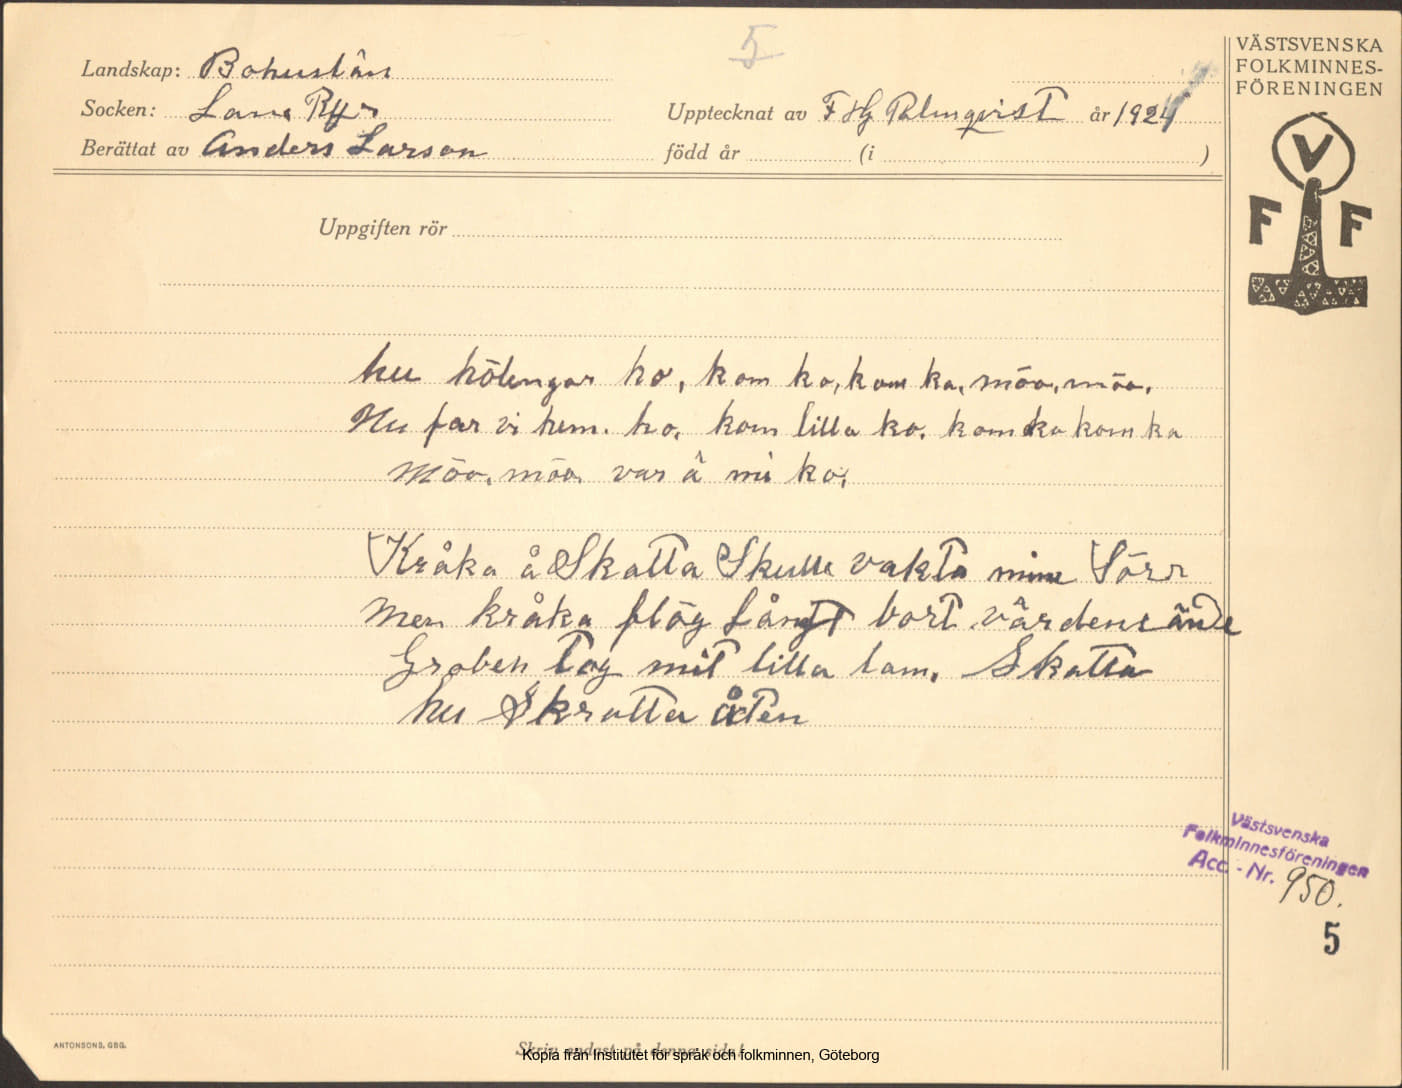 5
VÄSTSVENSKA
FOLKMINNES-
FÖRENINGEN
Landskap: Bohuslän
Socken: Lane Ryr
Upptecknat av F Hj Palmqvist år 1924
Berättat av Anders Larson
född år (i )
V
F F
Uppgiften rör
hu kölengar ko, kom ko, kom ka, möa, möa.
Nu far vi hem. ko. kom lilla ko. kom ka kom ka
Möa. möa. var ä mi ko.
Kråka å Skatta Skulle vakta mine Sörr
Men kråka flög Långt bort värdens ände
Graben tog mit lilla lam. Skatta
hu Skratta åten
Västsvenska
Folkminnesföreningen
Acc. - Nr. 950.
5
ANTONSONS, GBG.
Skriv endast på denna sida!
Kopia från Institutet för språk och folkminnen, Göteborg